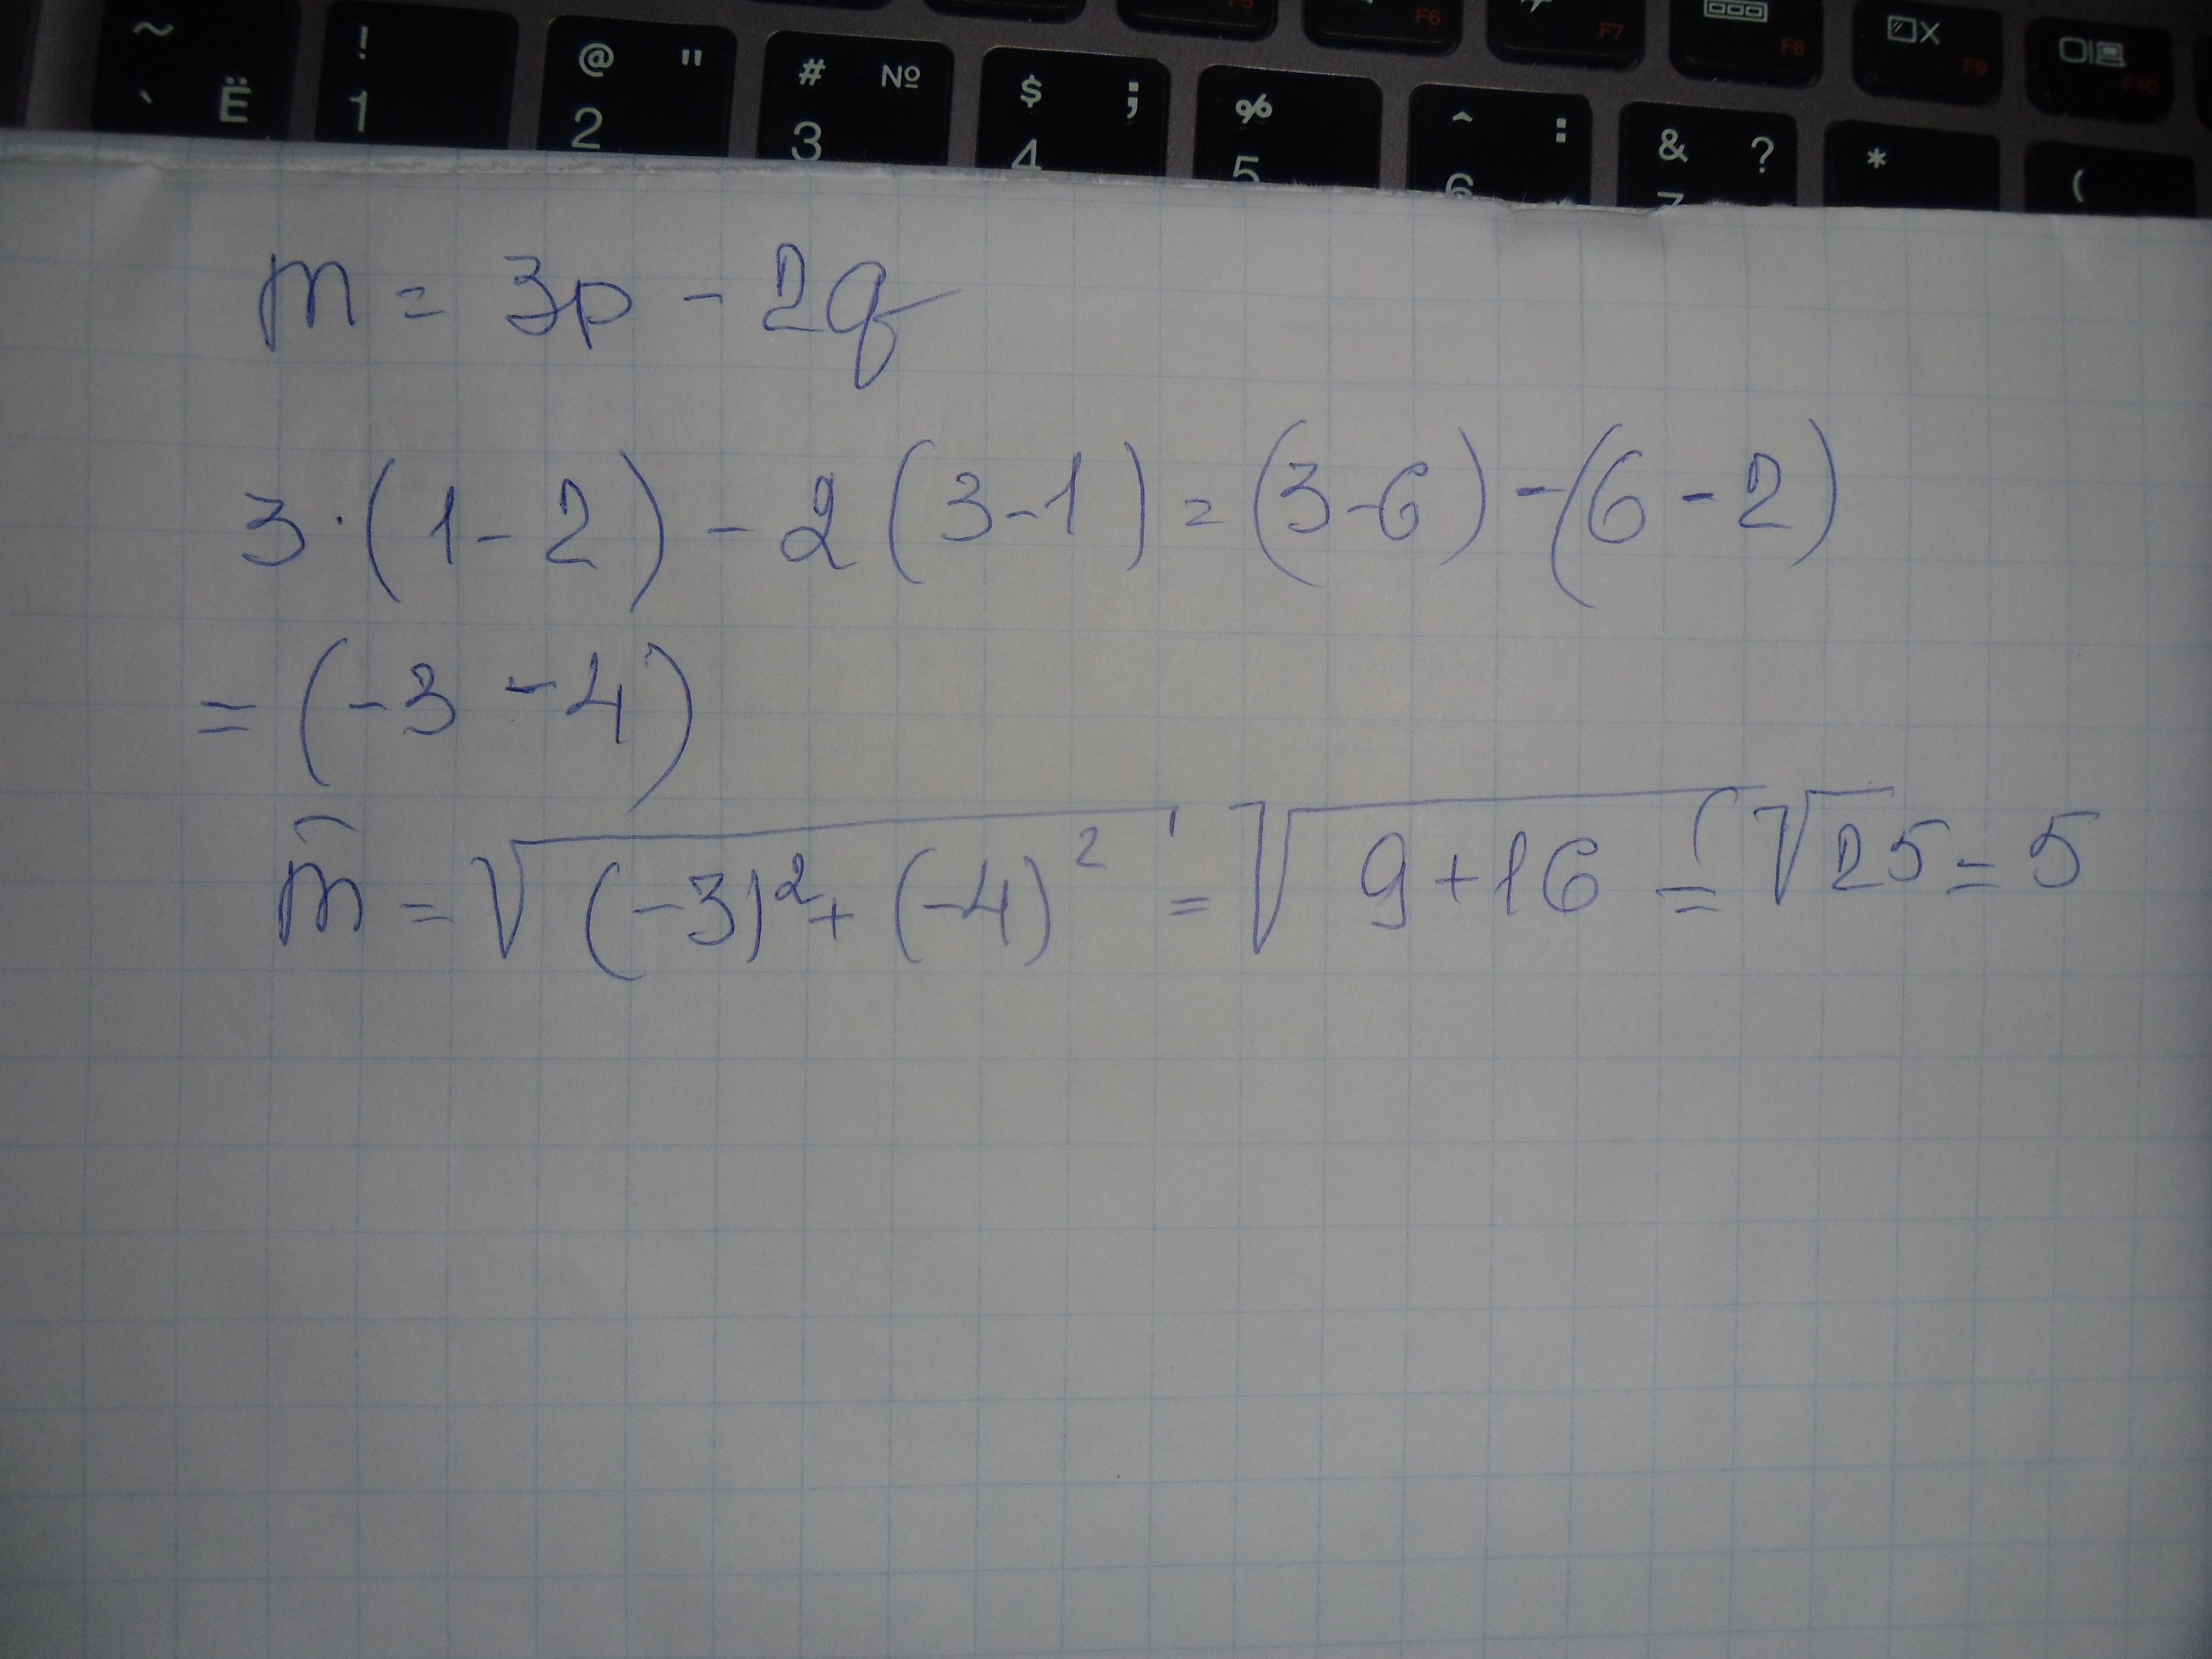 F5 F6 F7 F8 F9 F10
~ ` Ё ! 1 @ " 2 # № 3 $ ; 4 % 5 ^ : 6 & ? 7 * (
m = 3p - 2q
3·(1-2) - 2(3-1) = (3-6) - (6-2)
= (-3 -4)
m̄ = √(-3)²+(-4)² = √9+16 = √25 = 5